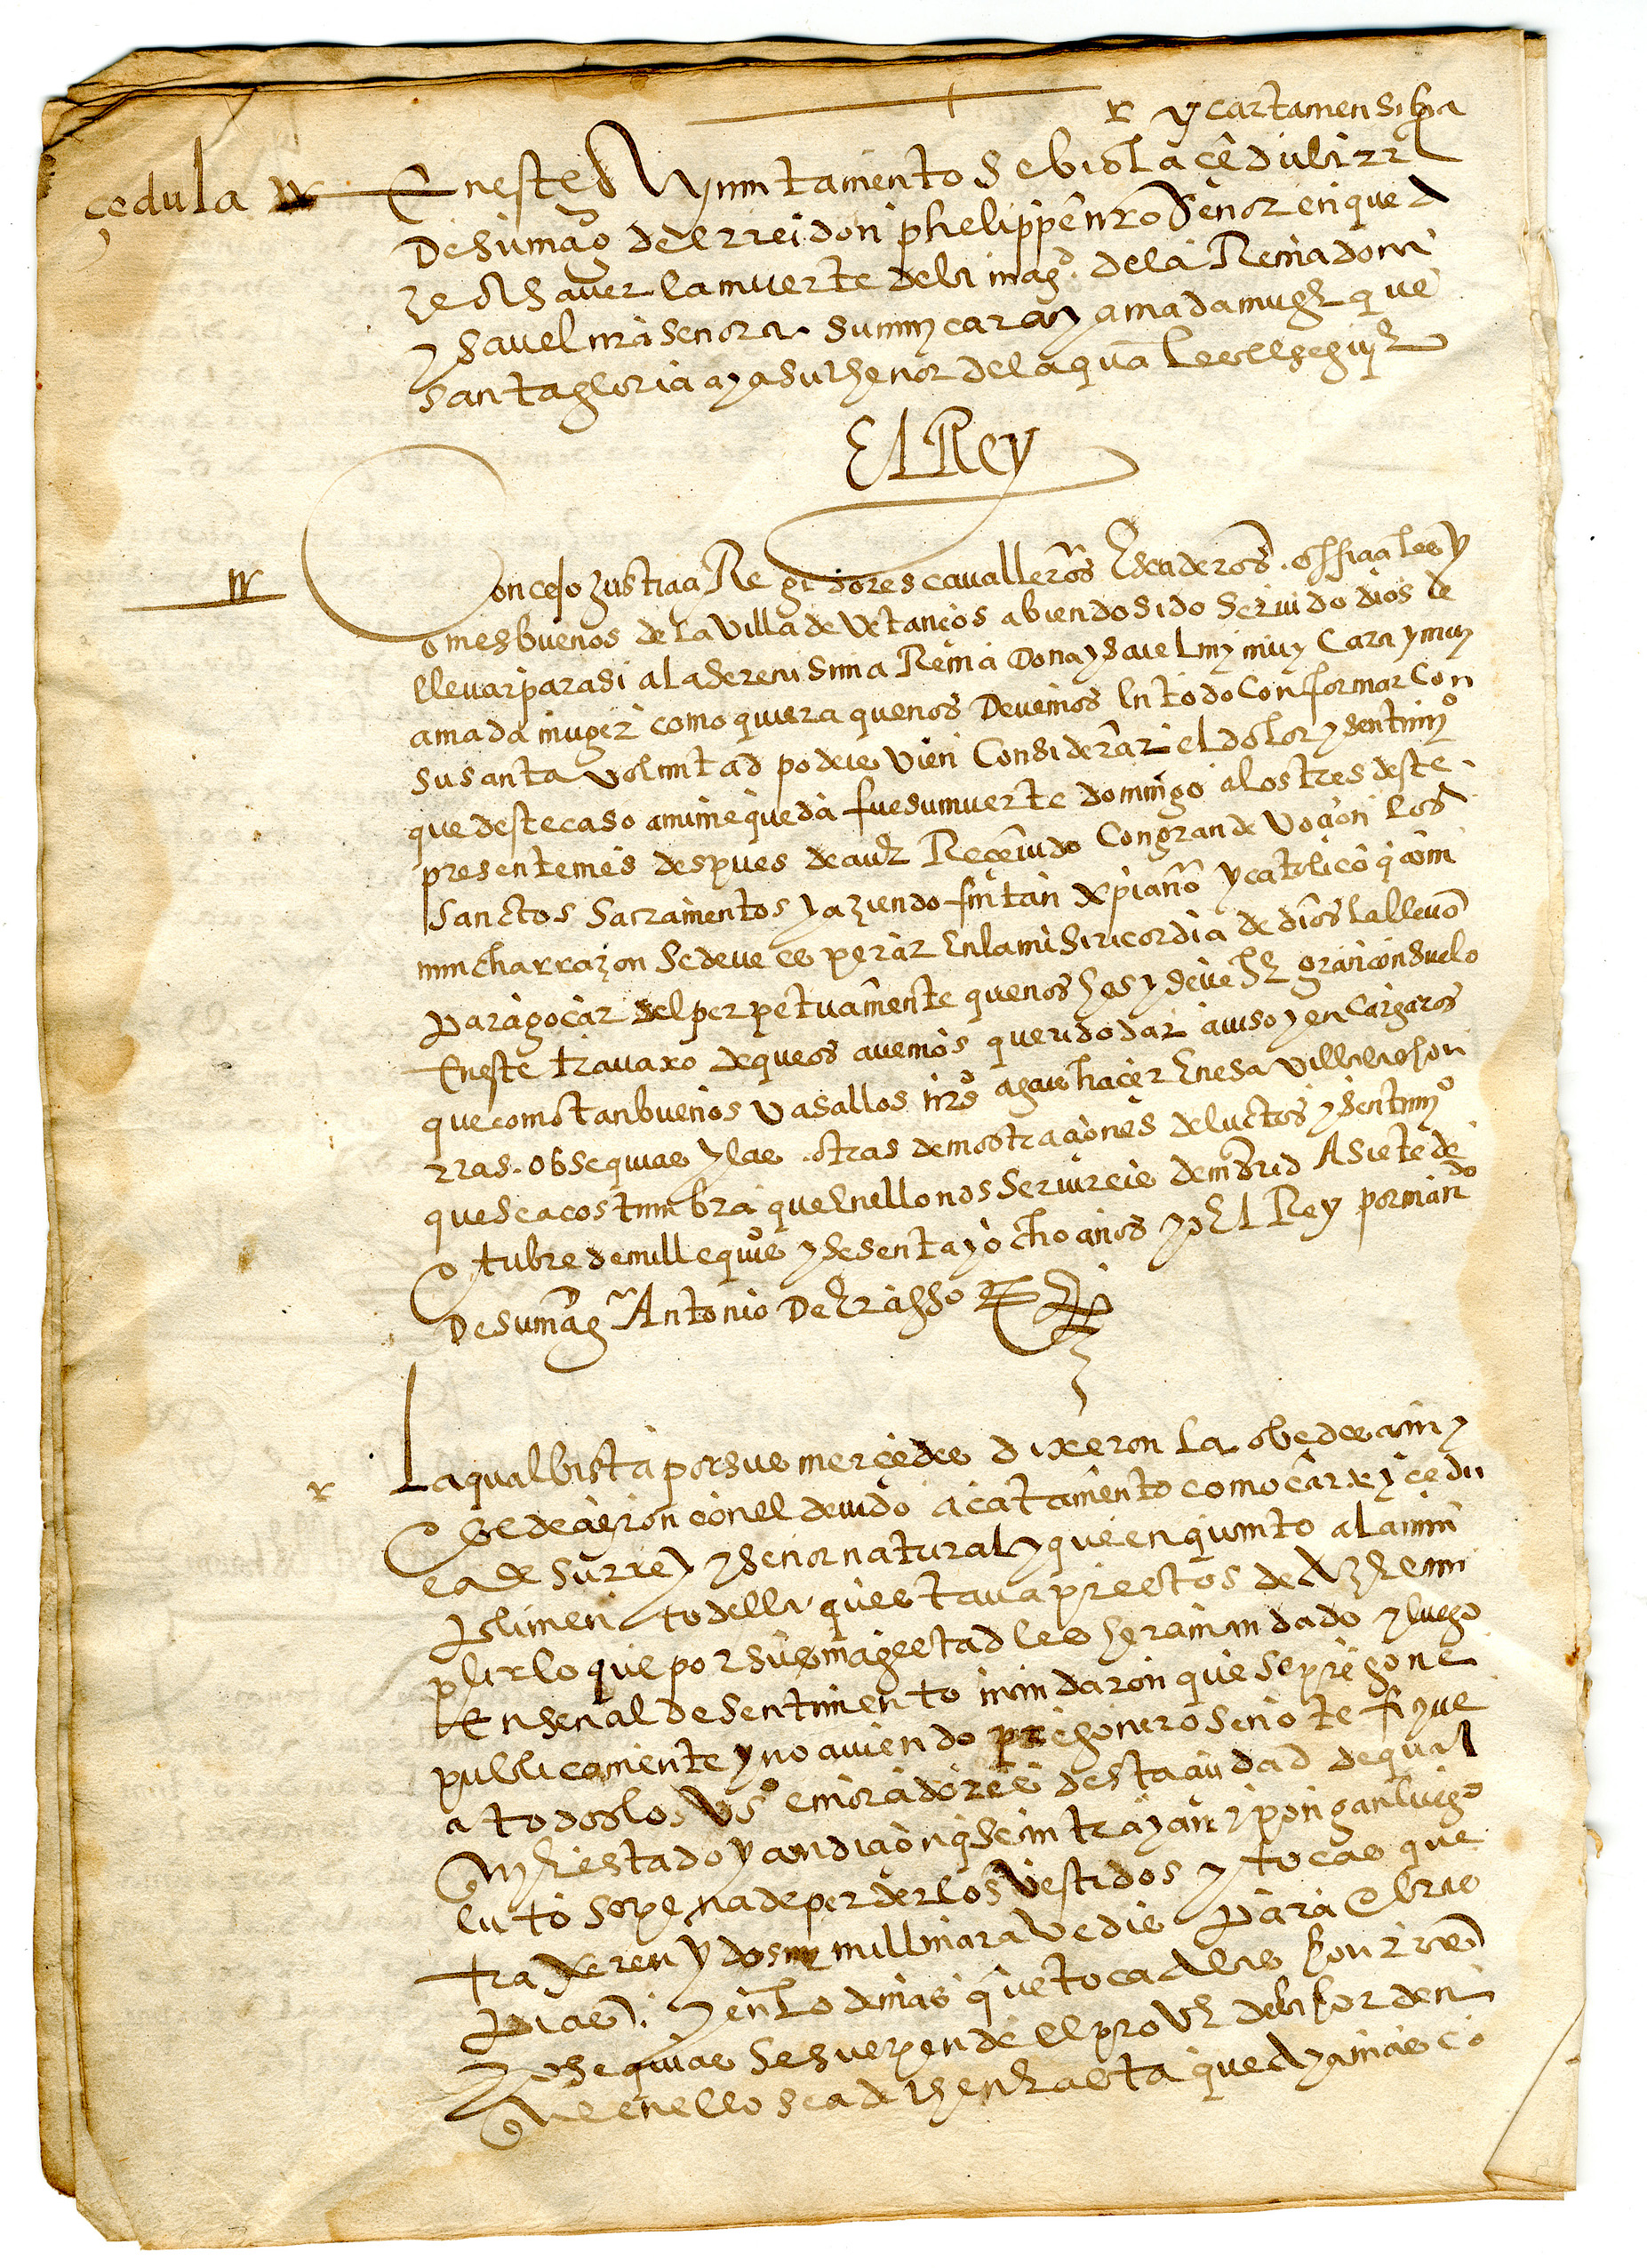 y carta mensiba
çedula
En este Ayuntamiento se bio la çedula rrl
De su magd del rrei don phelippe nro Señor en que d
ze saver la muerte de la magd de la Reina doña
ysavel nra señora su muy cara y amada muger que
santa gloria aya su thenor de la qual es el seguite
El Rey
Concejo Justicia Regidores cavalleros Escuderos officiales y
omes buenos de la Villa de Vetanços abiendo sido servido dios de
llevar para si a la serenissima Reina Doña ysavel my muy Cara y muy
amada muger como quiera que nos Devemos En todo Conformar Con
su santa voluntad podeis vien Considerar el dolor y sentimyº
que deste caso a mi me queda fue su muerte domingo a los tres deste
presente mes despues de aver Reçevido Con gran devoçion los
sanctos sacramentos y aziendo fin tan xpiano y catolico q con
mucha rrazon se deve esperar En la misiricordia de dios la llevo
para goçar del perpetuamente que nos es y deve ser gran consuelo
En este travaxo de que os avemos querido dar aviso y encargaros
que como tan buenos vasallos nros agais haçer En esa villa las hon
rras obsequias y las otras demostraçiones de luctos y sentimyº
que se acostumbra que En ello nos servireis de madrid A siete de
Otubre de mill e quis y sesenta y ocho años yo El Rey por mando
De su magd Antonio De Erasso
La qual bista por sus merçedes dixeron la obedesçian y
Obedeçieron con el devido acatamiento como carta y çedu
la de su rrey y señor natural y que en quanto al cum
plimento della que estava prestos de cum
plir lo que por su magestad les hera mandado y luego
En señal de sentimento mandaron que se pregone
publicamente y no aviendo pregonero se notefique
a todos los vsº e moradores desta ciudad de qual
quier estado y condiçion q sean trayan y pongan luego
luto so pena de perder los vestidos y tocas que
traxeren y dos mill maravedis para Obras
Pias. y en lo demas que toca a las honrras
y osequias se suspende el prover de la horden
que en ello se a de thener asta que aya mas co